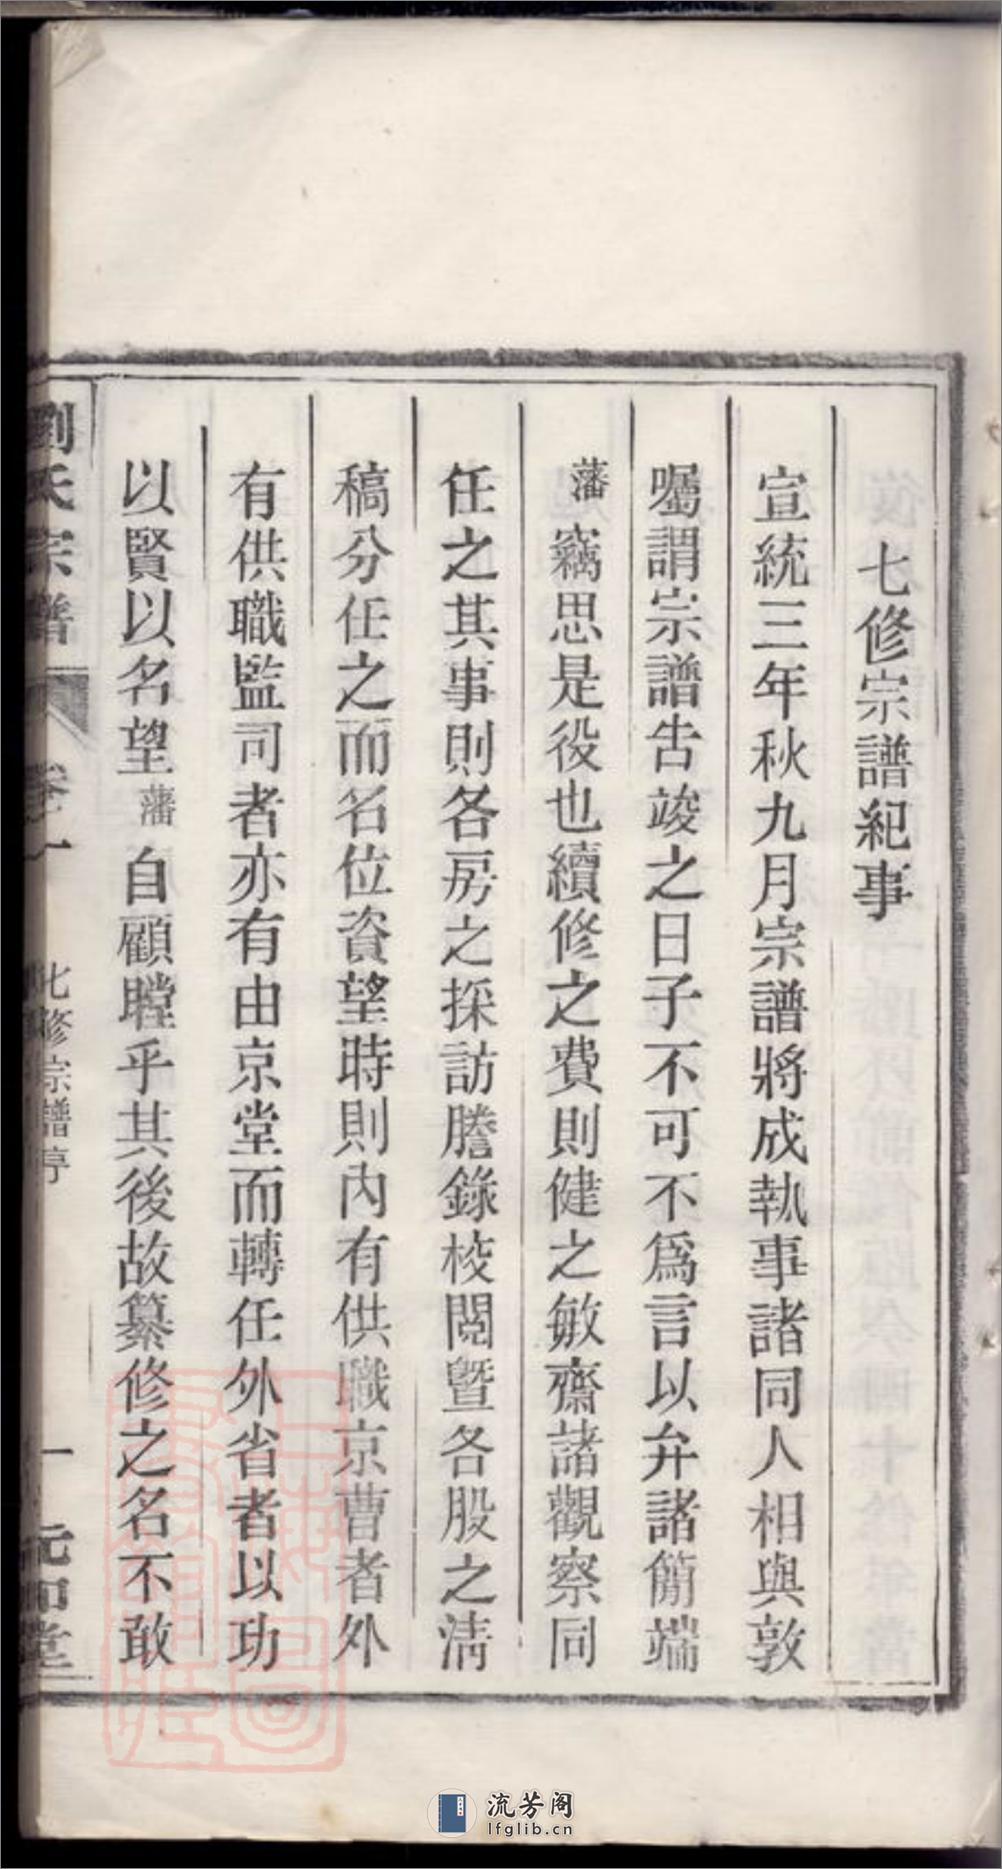 七修宗譜紀事
宣統三年秋九月宗譜將成執事諸同人相與敦
囑謂宗譜告竣之日子不可不爲言以弁諸簡端
藩竊思是役也續修之費則健之敏齋諸觀察同
任之其事則各房之採訪謄錄校閱曁各股之淸
稿分任之而名位資望時則內有供職京曹者外
有供職監司者亦有由京堂而轉任外省者以功
以賢以名望藩自顧瞠乎其後故纂修之名不敢
劉氏宗譜 卷一 七修宗譜序 一 元和堂
流芳阁
lfglib.cn